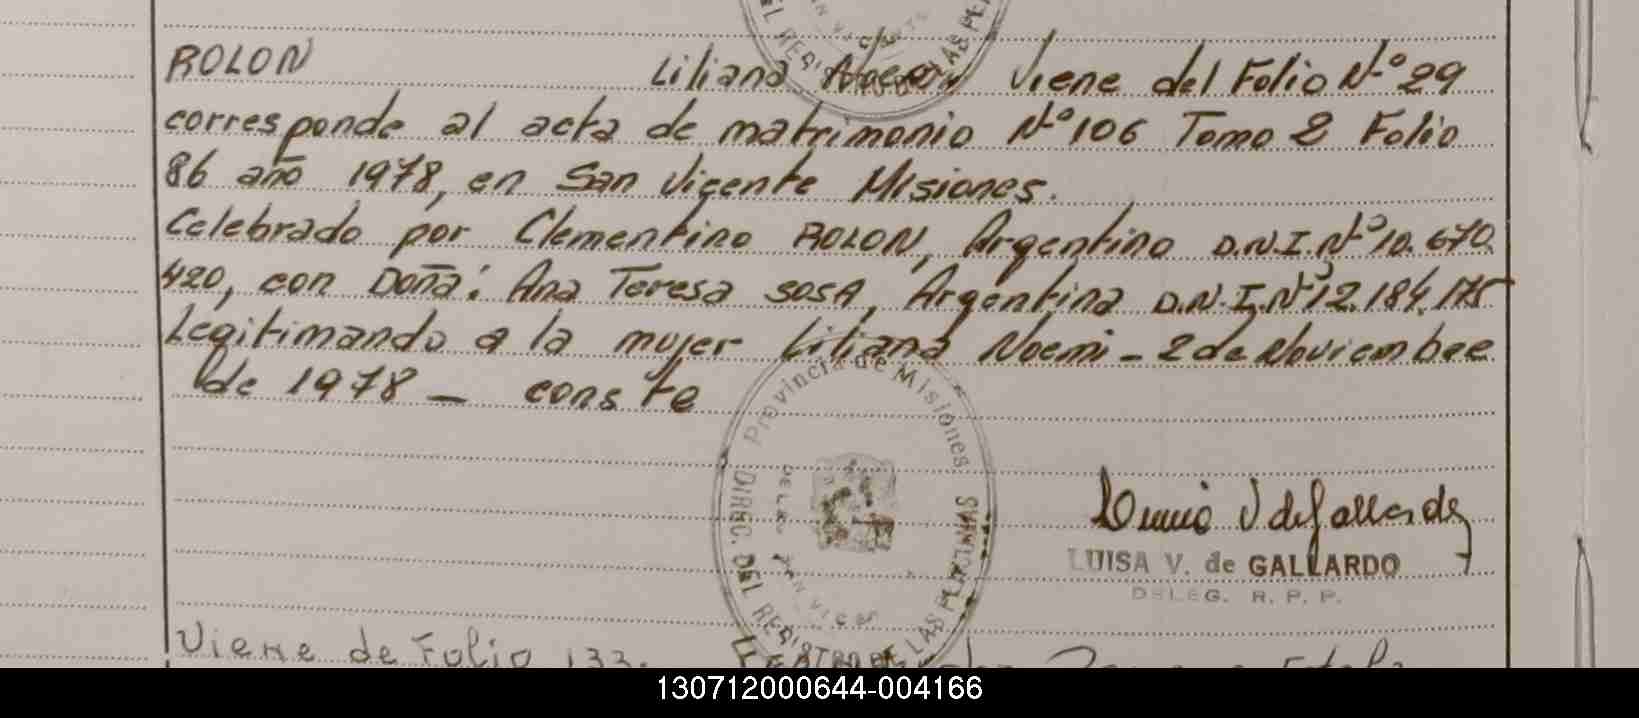 ROLON Liliana Noemi Viene del Folio Nº 29
corresponde al acta de matrimonio Nº 106 Tomo 2 Folio
86 año 1978, en San Vicente Misiones.
Celebrado por Clementino ROLON, Argentino D.N.I. Nº 10.670.
420, con Doña: Ana Teresa SOSA, Argentina D.N.I. Nº 12.184.175
Legitimando a la mujer Liliana Noemi - 2 de Noviembre
de 1978 - conste
Provincia de Misiones
DIREC. DEL REGISTRO DE LAS PERSONAS
SAN VICENTE
LUISA V. de GALLARDO
DELEG. R. P. P.
Viene de Folio 133.
130712000644-004166